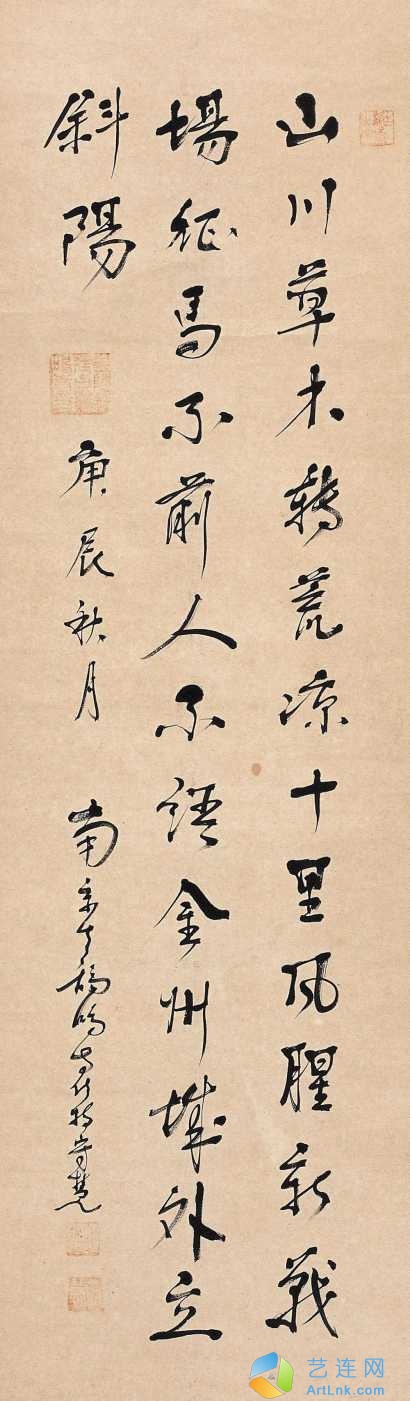 山川草木轉荒涼十里風腥新戰
場征馬不前人不語金州城外立
斜陽
庚辰秋月
南京古鷄鳴寺住持守慧
艺连网
ArtLnk.com